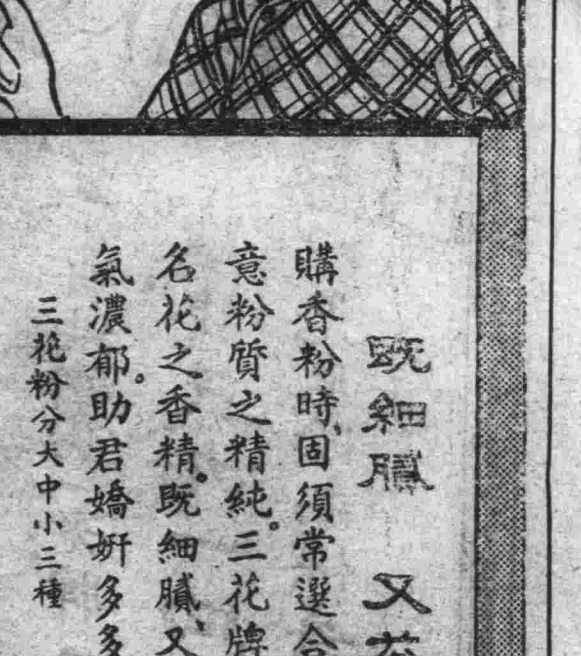 既細膩 又芬
購香粉時、固須常選合
意粉質之精純。三花牌
名花之香精。既細膩、又
氣濃郁。助君嬌妍多多
三花粉分大中小三種